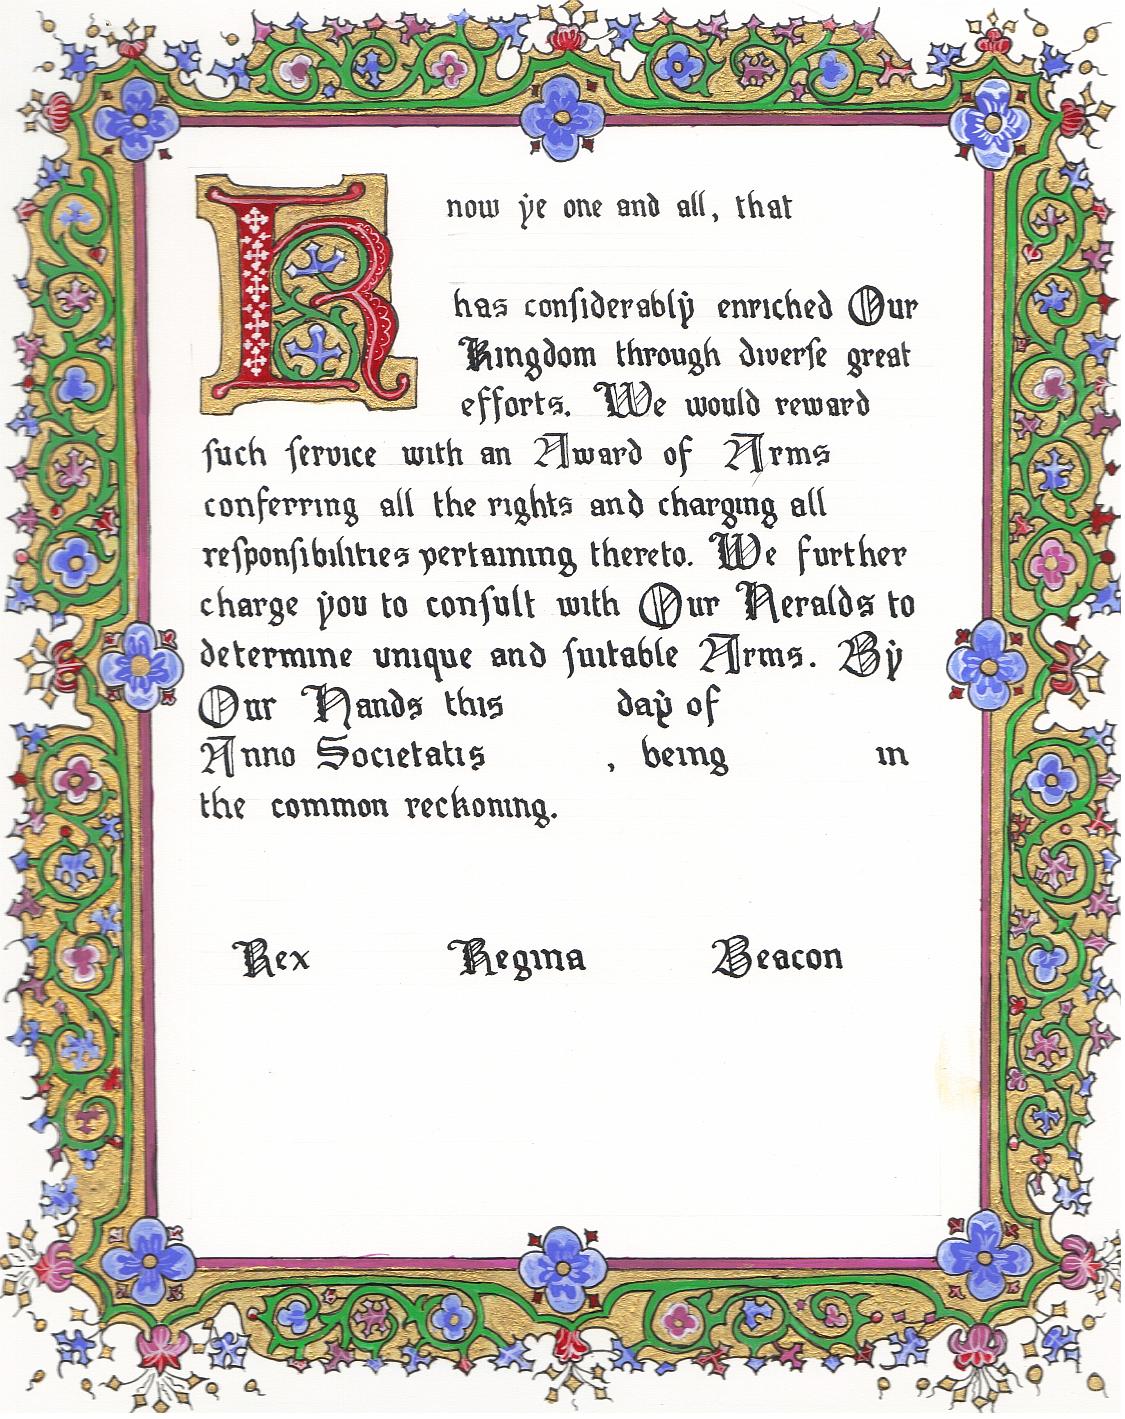 Know ye one and all, that
has conſiderably enriched Our
Kingdom through diverſe great
efforts. We would reward
ſuch ſervice with an Award of Arms
conferring all the rights and charging all
reſponſibilities pertaining thereto. We further
charge you to conſult with Our Heralds to
determine unique and ſuitable Arms. By
Our Hands this day of
Anno Societatis , being in
the common reckoning.
Rex Regina Beacon